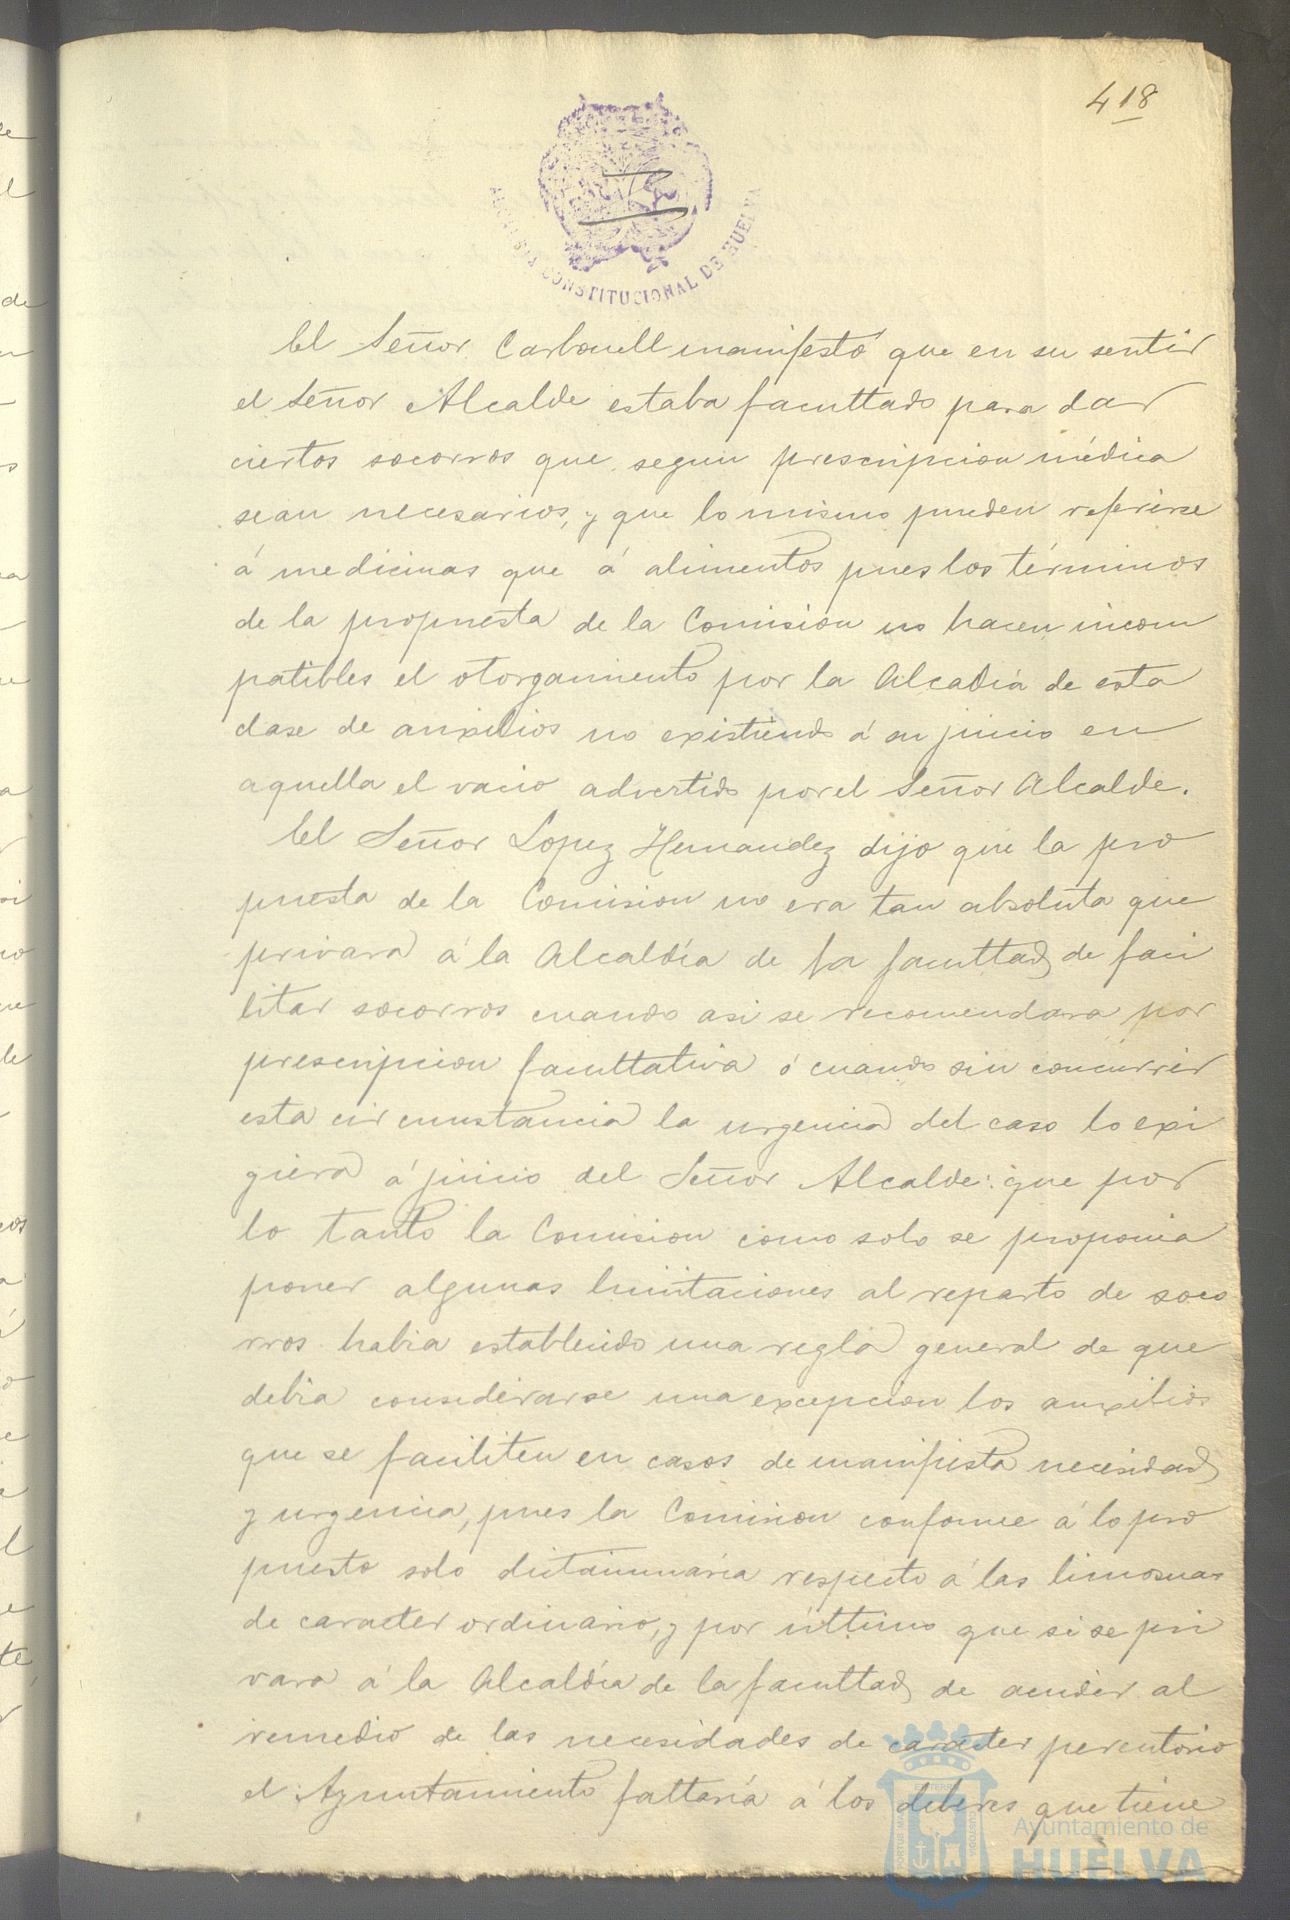 418
ALCALDIA CONSTITUCIONAL DE HUELVA
El Señor Carbonell manifestó que en su sentir
el Señor Alcalde estaba facultado para dar
ciertos socorros que segun prescripcion médica
sean necesarios, y que lo mismo pueden referirse
á medicinas que á alimentos pues los términos
de la propuesta de la Comision no hacen incom
patibles el otorgamiento por la Alcaldia de esta
clase de auxilios no existiendo á su juicio en
aquella el vacio advertido por el Señor Alcalde.
El Señor Lopez Hernandez dijo que la pro
puesta de la Comision no era tan absoluta que
privara á la Alcaldía de la facultad de faci
litar socorros cuando asi se recomendara por
prescripcion facultativa ó cuando sin concurrir
esta circunstancia la urgencia del caso lo exi
giera á juicio del Señor Alcalde: que por
lo tanto la Comision como solo se proponia
poner algunas limitaciones al reparto de soco
rros habia establecido una regla general de que
debia considerarse una excepcion los auxilios
que se faciliten en casos de manifiesta necesidad
y urgencia, pues la Comision conforme á lo pro
puesto solo dictaminaria respecto á las limosnas
de caracter ordinario, y por último que si se pri
vara á la Alcaldía de la facultad de acudir al
remedio de las necesidades de caracter perentorio
el Ayuntamiento faltaría á los deberes que tiene
Ayuntamiento de
HUELVA